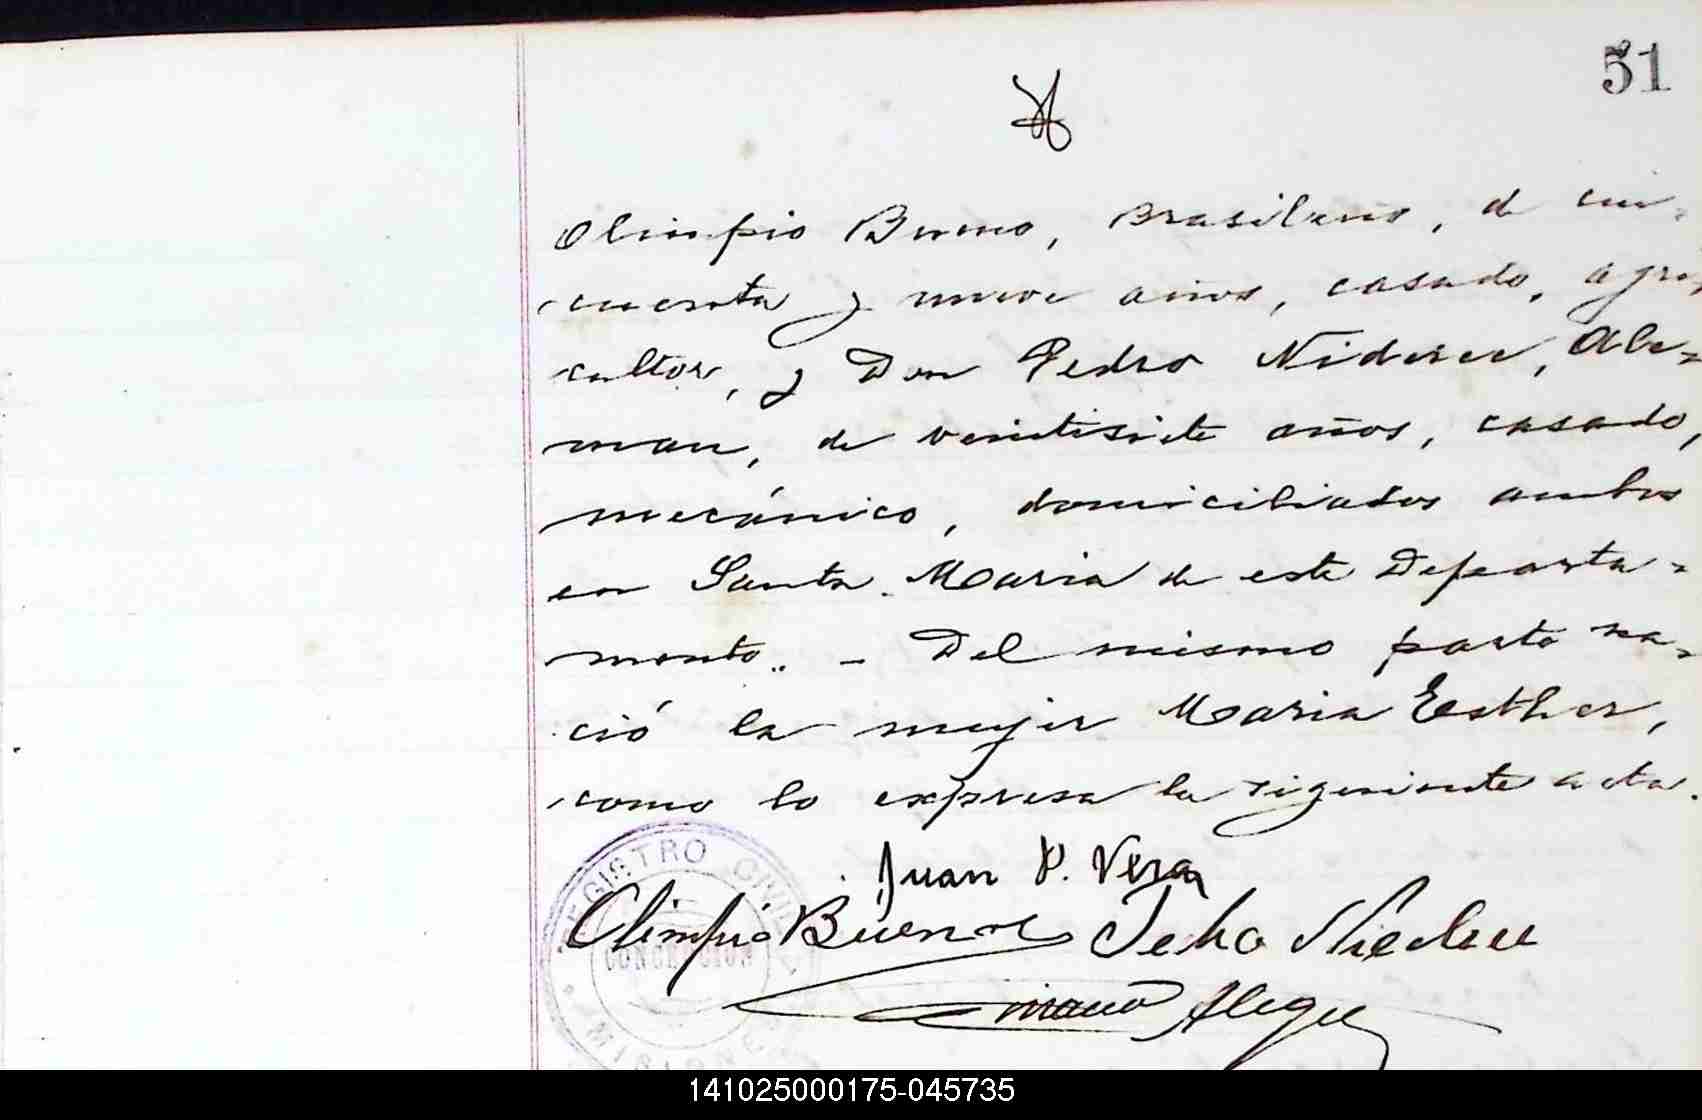 51
Olimpio Bueno, Brasilero, de cin-
cuenta y nueve años, casado, agri-
cultor, y Don Pedro Niderer, Ale-
man, de veintisiete años, casado,
mecánico, domiciliados ambos
en Santa Maria de este Departa-
mento.. - Del mismo parto na-
ció la mujer Maria Esther,
como lo expresa la siguiente acta.
Juan P. Vera
Olimpio Bueno Pedro
Alegre
REGISTRO CIVIL
CONCEPCION
MISIONES
141025000175-045735